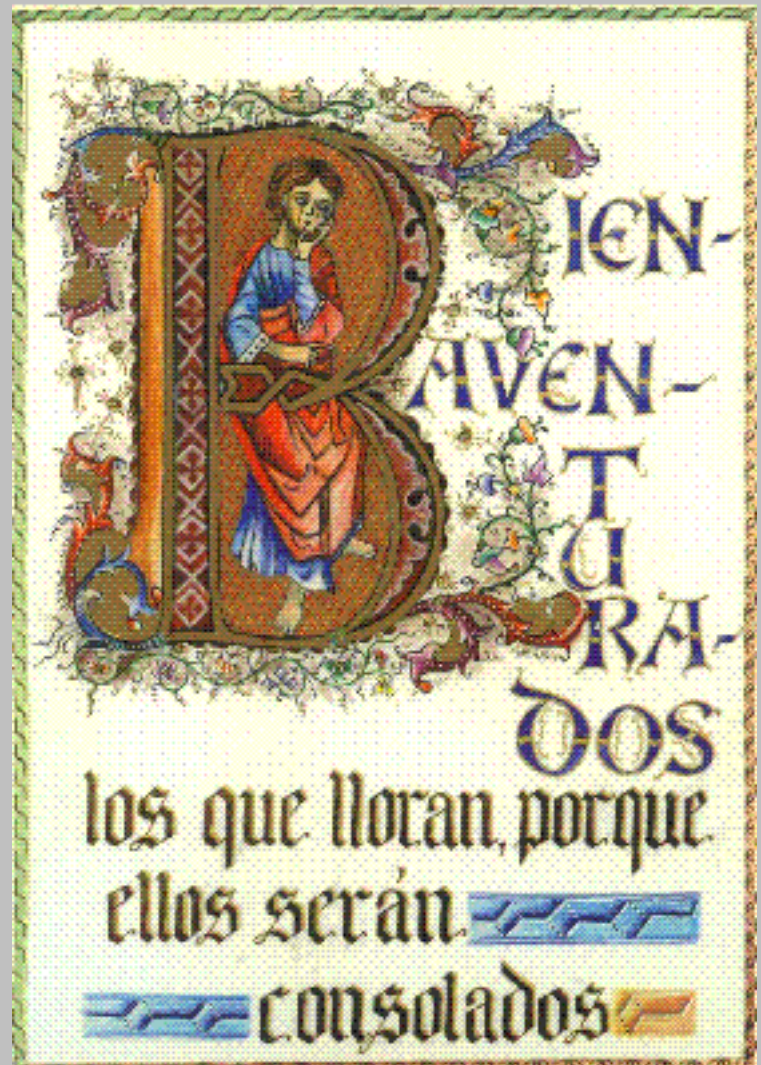 BIEN-
AVEN-
T
U
RA-
DOS
los que lloran, porque
ellos serán
consolados